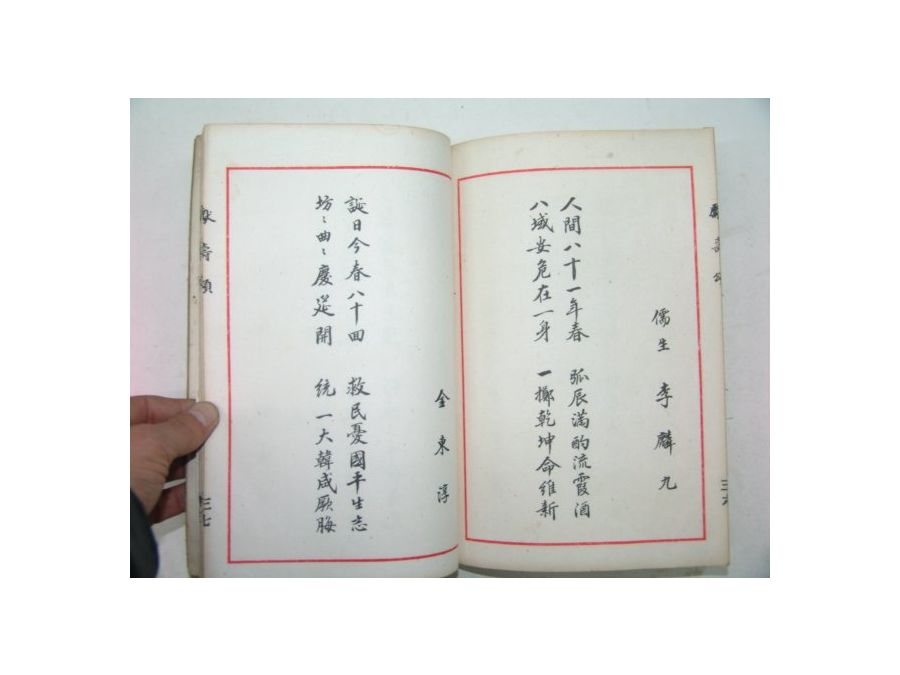 獻壽頌 三六
儒生 李麟九
人間八十一年春 弧辰滿酌流霞酒
八域安危在一身 一擲乾坤命維新
金東淳
誕日今春八十回 救民憂國平生志
坊〻曲〻慶筵開 統一大韓咸厥脢
獻壽頌 三七